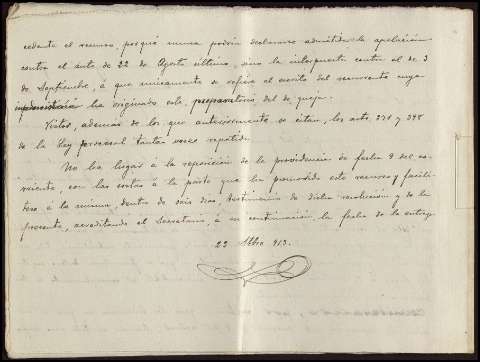 cedente el recurso, porqué nunca podría declararse admitida la apelación
contra el auto de 22 de Agosto último, sino la interpuesta contra el de 3
de Septiembre, á que unicamente se refiere el escrito del recurrente cuya
ha originado este preparatorio del de queja.
Vistos, además de los que anteriormente se citan, los arts. 371 y 398
de la Ley procesal tantas veces repetida.
No ha lugar á la reposición de la providencia de fecha 9 del co-
rriente, con las costas á la parte que ha promovido este recurso y facilí-
tese á la misma, dentro de seis dias, testimonio de dicha resolución y de la
presente, acreditando el Secretario, á su continuación, la fecha de la entrega
22 Stbre 913.